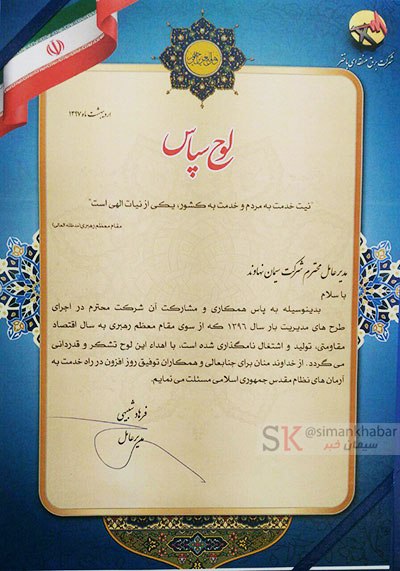 شرکت برق منطقه ای باختر
اردیبهشت ماه ۱۳۹۷
لوح سپاس
"نیت خدمت به مردم و خدمت به کشور، یکی از نیات الهی است"
مقام معظم رهبری (مد ظله العالی)
مدیرعامل محترم شرکت سیمان نهاوند
با سلام
بدینوسیله به پاس همکاری و مشارکت آن شرکت محترم در اجرای
طرح های مدیریت بار سال ۱۳۹۶ که از سوی مقام معظم رهبری به سال اقتصاد
مقاومتی، تولید و اشتغال نامگذاری شده است، با اهداء این لوح تشکر و قدردانی
می گردد. از خداوند منان برای جنابعالی و همکاران توفیق روز افزون در راه خدمت به
آرمان های نظام مقدس جمهوری اسلامی مسئلت می نمایم.
فرهاد شبیهی
مدیرعامل
SK @simankhabar
سیمان خبر